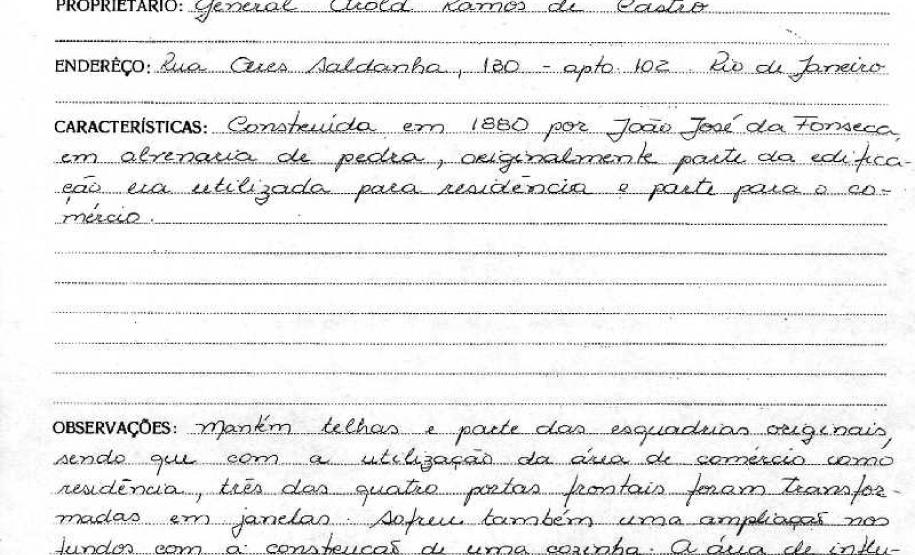 PROPRIETÁRIO: General Arold Ramos de Castro
ENDERÊÇO: Rua Ceres Saldanha, 180 - apto. 102 Rio de Janeiro
CARACTERÍSTICAS: Construída em 1880 por João José da Fonseca,
em alvenaria de pedra, originalmente parte da edifica-
ção era utilizada para residência e parte para o co-
mércio.
OBSERVAÇÕES: Mantém telhas e parte das esquadrias originais,
sendo que com a utilização da área de comércio como
residência, três das quatro portas frontais foram transfor-
madas em janelas. Sofreu também uma ampliação nos
fundos com a construção de uma cozinha. A área de influ-